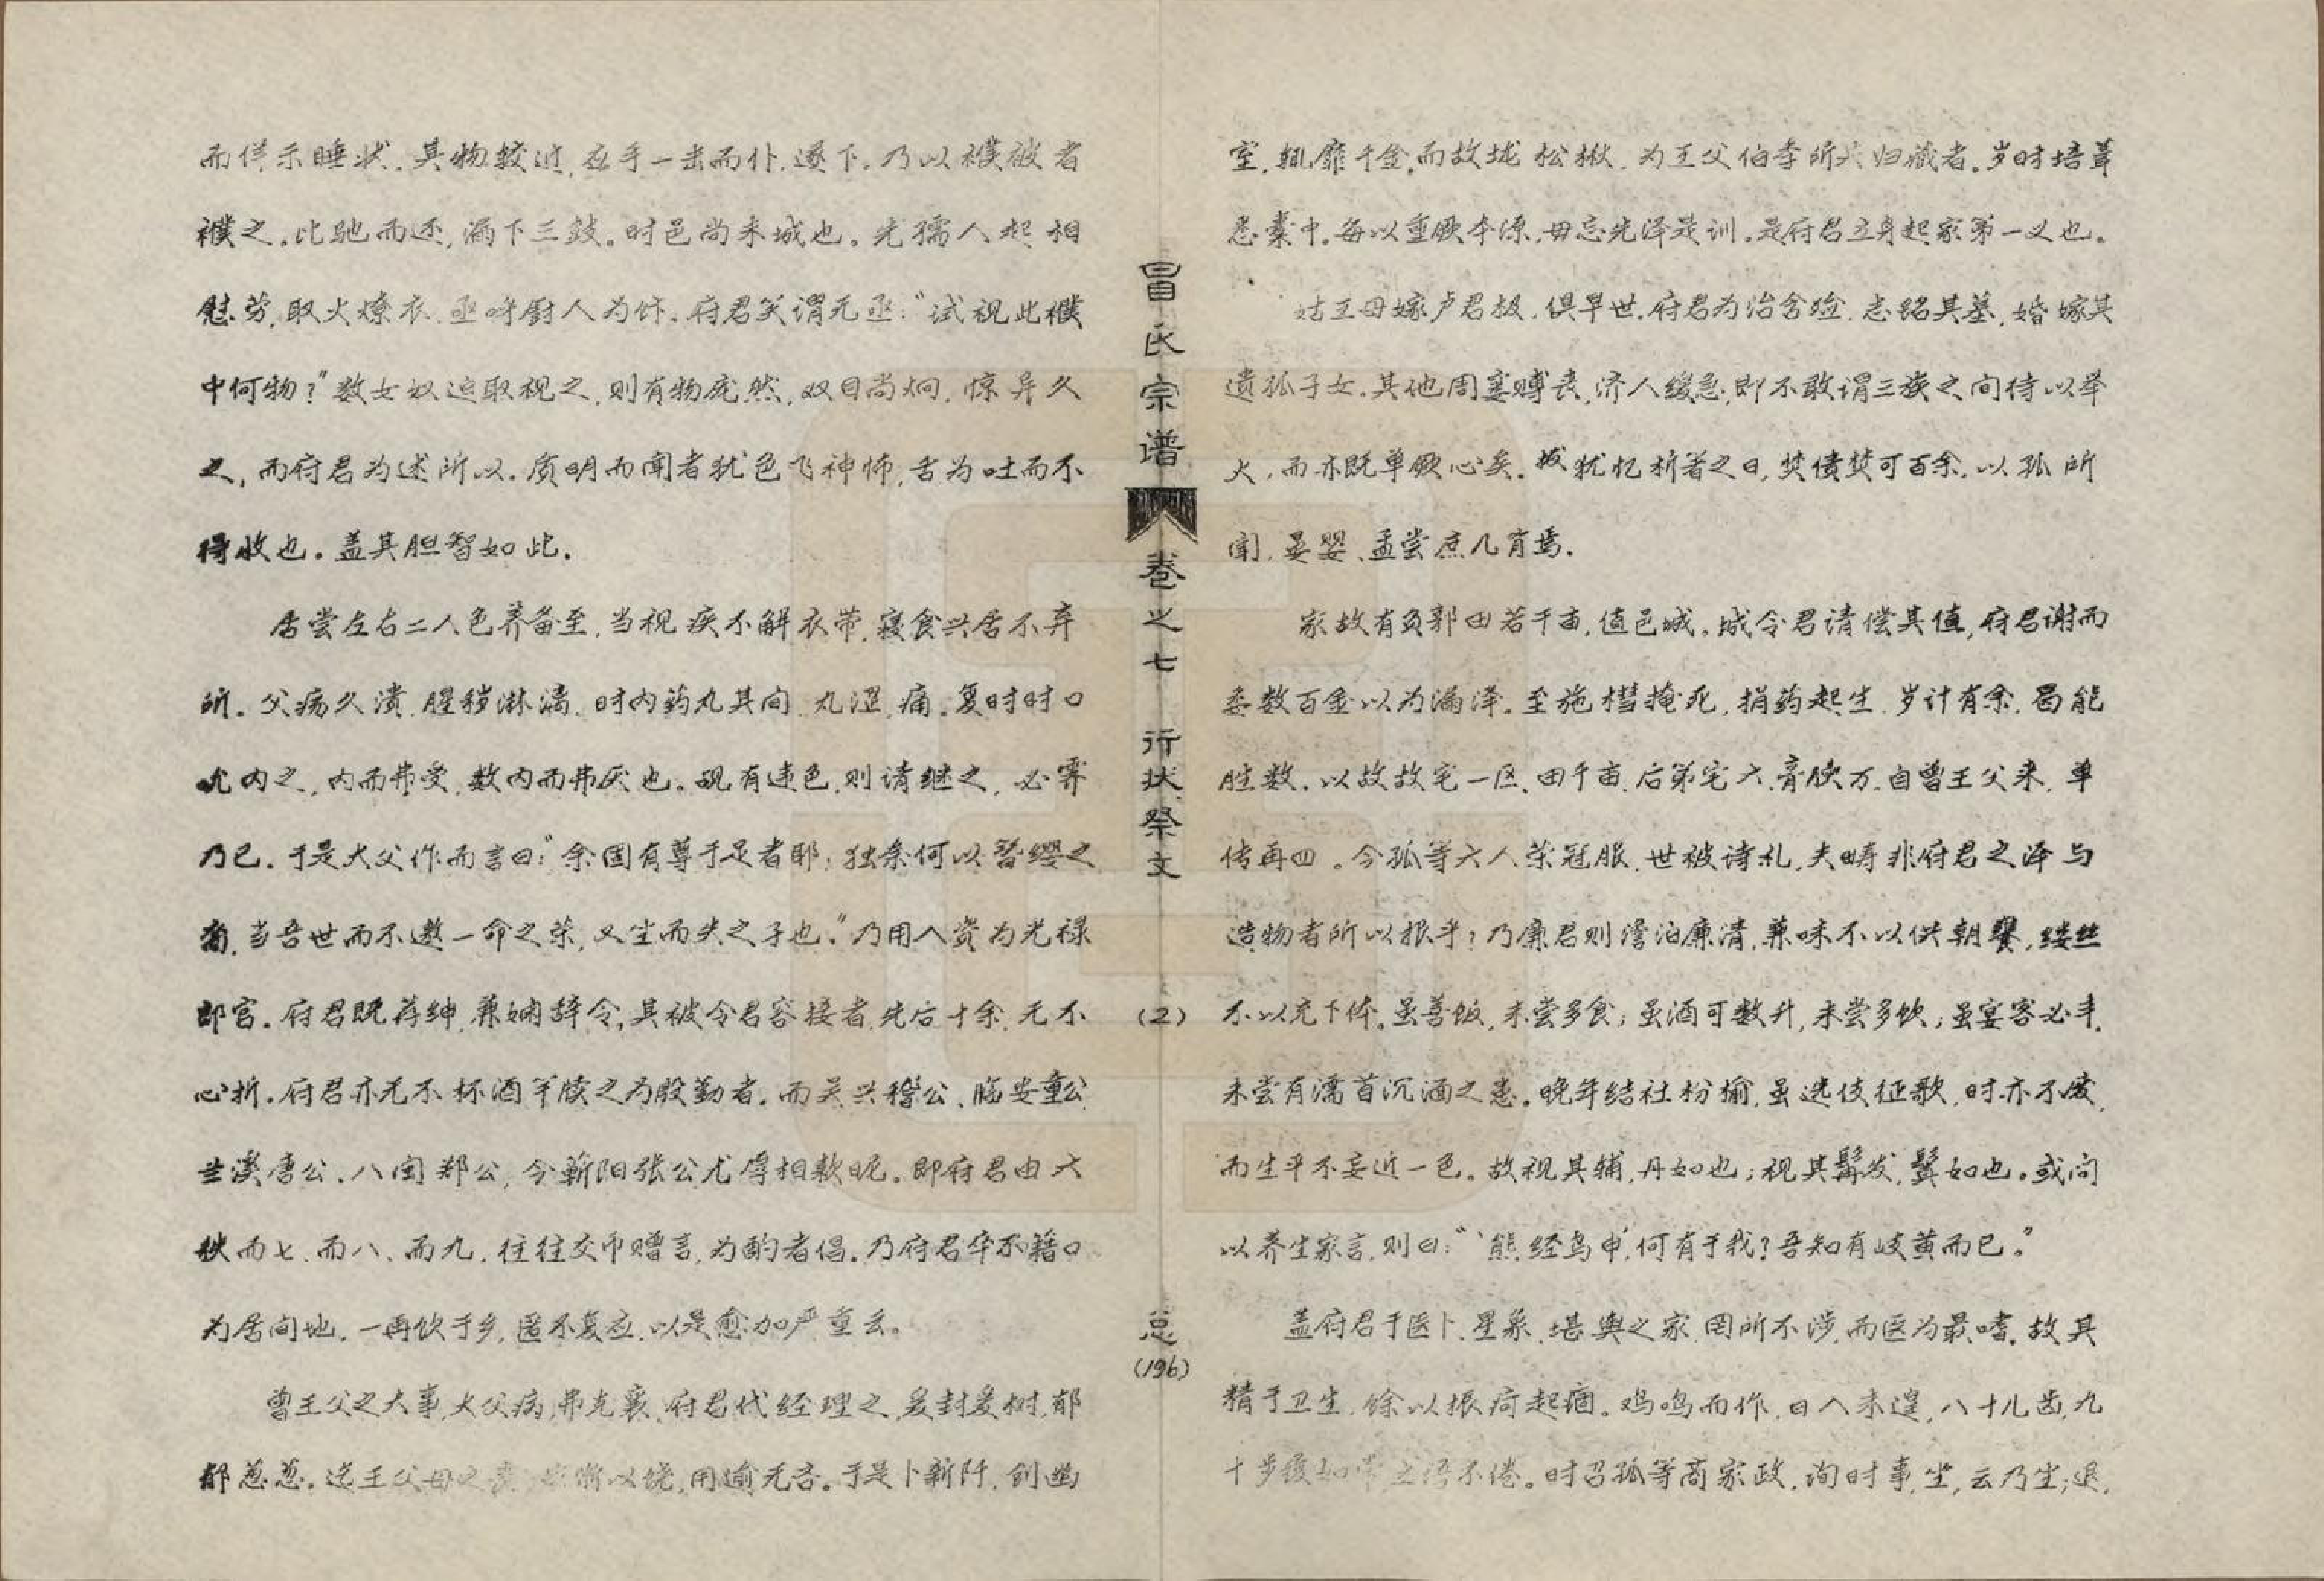 而佯示睡状.其物较近,在手一击而仆.遂下.乃以襆被者
襆之.比驰而还,漏下三鼓。时邑尚未城也。先孺人起相
慰劳,取火燎衣.亟呼厨人为饪.府君笑谓无亟:"试视此襆
中何物?"数女奴迫取视之,则有物庞然,双目尚炯.惊异久
之,而府君为述所以.质明而闻者犹色飞神怖,舌为吐而不
得收也。盖其胆智如此.
居尝左右二人色养备至.当视疾不解衣带,寝食兴居不弃
所。父病久溃.腥秽淋漓.时内药丸其间.丸涩.痛.复时时口
吮内之,内而弗受,数内而弗厌也。觌有违色,则请继之,必霁
乃已.于是大父作而言曰:"余固有尊于足者耶;独奈何以簪缨之
当吾世而不邀一命之荣,又坐而失之子也."乃用入资为光禄
郎官.府君既荐绅.兼娴辞令,其被令君容接者.先后十余.无不
心折.府君亦无不杯酒竿牍之为殷勤者.而吴兴稽公、临安童公
兰溪唐公.八闽郑公,今蕲阳张公尤厚相款昵.即府君由六
秩而七.而八、而九.往往交币赠言,为酌者倡.乃府君卒不籍口
为居间地.一再饮于乡,匿不复应.以是愈加严重云.
曾王父之大事,大父病,弗克襄.府君代经理之,爰封爰树.郁
郁葱葱.迨王父母之以饶,用逾无吝.于是卜新阡,创幽
冒氏宗谱
卷之七 行状祭文
(2)
总
(196)
室,辄靡千金,而故垅松楸.为王父伯季所共归藏者.岁时培葺
悉橐中.每以重厥本源,毋忘先泽是训.是府君立身起家第一义也.
姑王母嫁卢君极.俱早世.府君为治含殓.志铭其墓,婚嫁其
遗孤子女.其他周窭赙丧,济人缓急,即不敢谓三族之间待以举
火,而亦既单厥心矣.犹忆析著之日,焚债焚可百余.以孤所
闻.晏婴、孟尝庶几肖焉.
家故有负郭田若干亩,值邑城.城令君请偿其值,府君谢而
委数百金以为漏泽.至施槥掩死,捐药起生.岁计有余.曷能
胜数.以故故宅一区、田千亩.后第宅六.膏腴万.自曾王父来.单
传再四.今孤等六人荣冠服.世被诗礼,夫畴非府君之泽与
造物者所以报乎?乃廉君则澹泊廉清,兼味不以供朝饔,缕丝
不以充下体.虽善饭,未尝多食;虽酒可数升,未尝多饮;虽宴客必丰,
未尝有濡首沉湎之患.晚年结社枌榆,虽选伎征歌,时亦不废,
而生平不妄近一色。故视其辅.丹如也;视其髯发,鬒如也.或问
以养生家言,则曰:"'熊经鸟申'何有于我?吾知有岐黄而已。"
盖府君于医卜.星象.堪舆之家.罔所不涉.而医为最嗜.故其
精于卫生.馀以振疴起痼.鸡鸣而作.日入未遑.八十儿齿,九
十步履如常之语不倦.时召孤等商家政.询时事.坐,云乃坐;退,